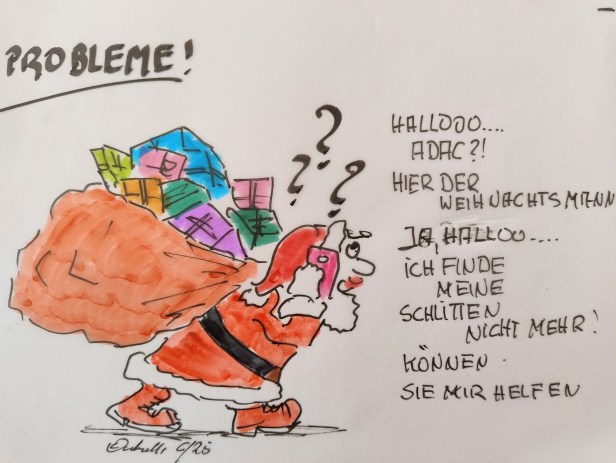 PROBLEME!
? ? ?
HALLOOO....
ADAC?!
HIER DER
WEIHNACHTSMANN
JA, HALLOO....
ICH FINDE
MEINE
SCHLITTEN
NICHT MEHR!
KÖNNEN
SIE MIR HELFEN